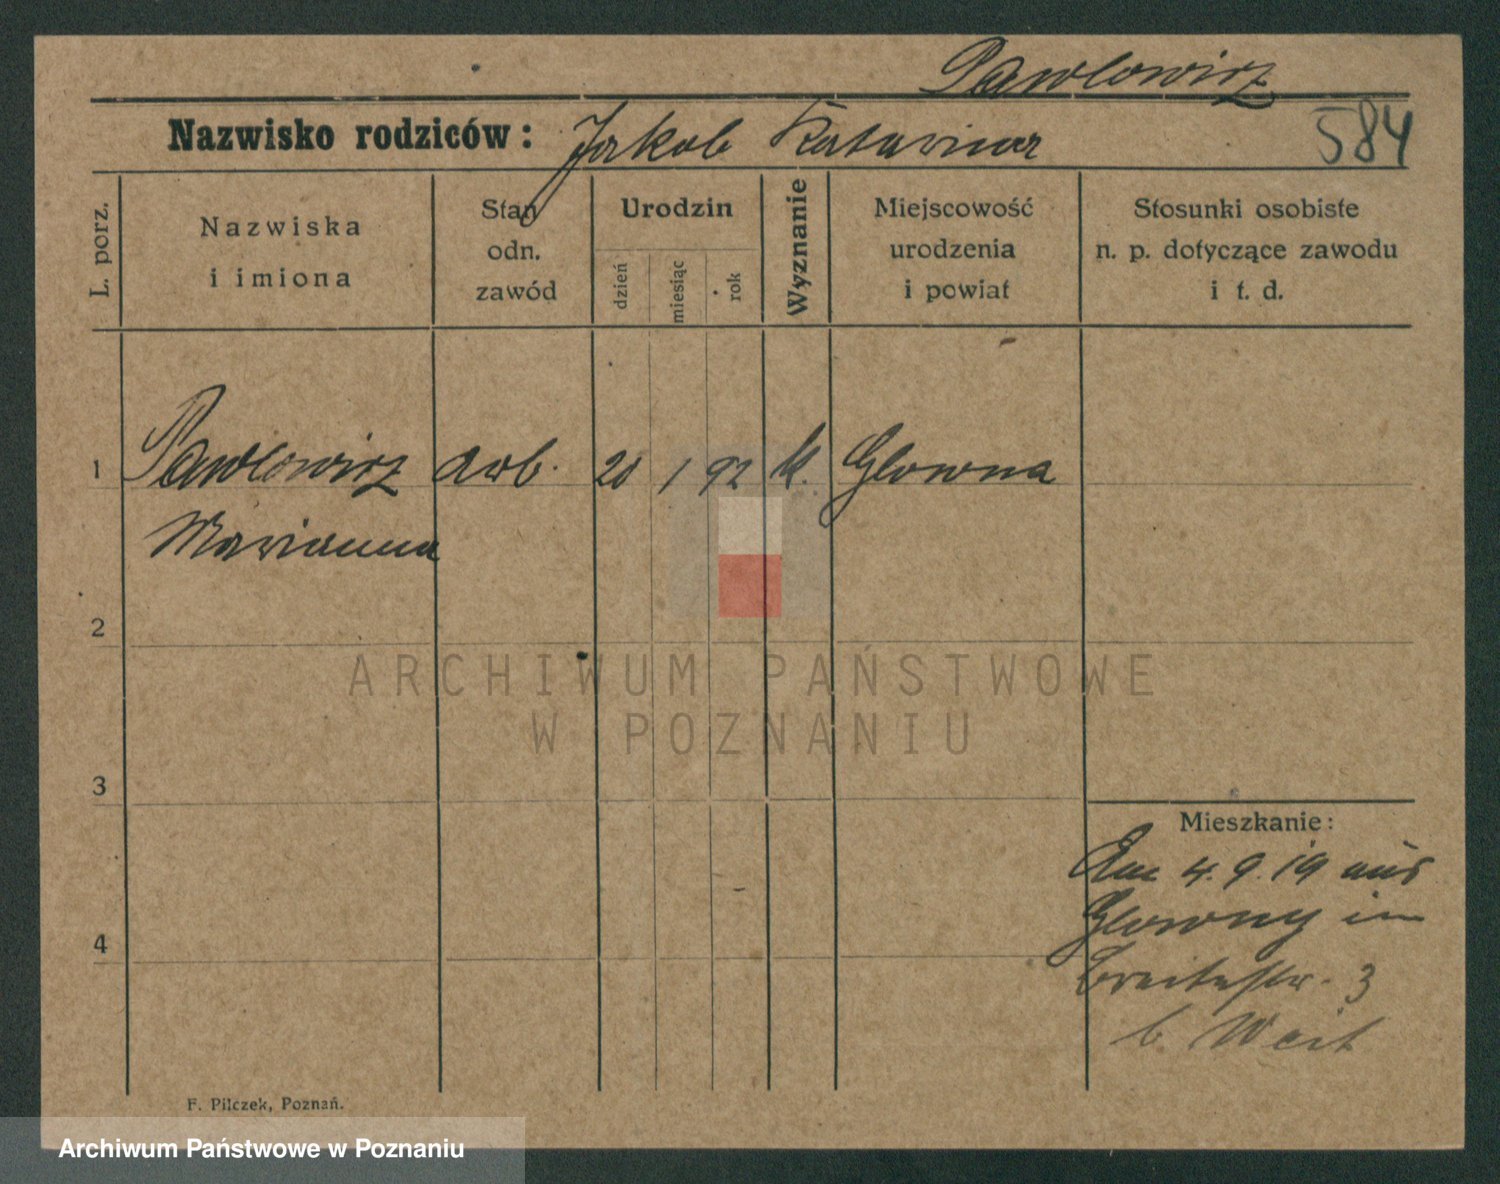 Pawlowicz
Nazwisko rodziców: Jakob Katarina
584
L. porz.
Nazwiska
i imiona
Stan
odn.
zawód
Urodzin
dzień
miesiąc
rok
Wyznanie
Miejscowość
urodzenia
i powiat
Stosunki osobiste
n. p. dotyczące zawodu
i t. d.
1 Pawlowicz arb. 20 1 92 k. Glowna
Marianna
2
ARCHIWUM PAŃSTWOWE
W POZNANIU
3
Mieszkanie:
Am 4.9.19 aus
4
Glowny in
Breitestr. 3
b.
F. Pilczek, Poznań.
Archiwum Państwowe w Poznaniu